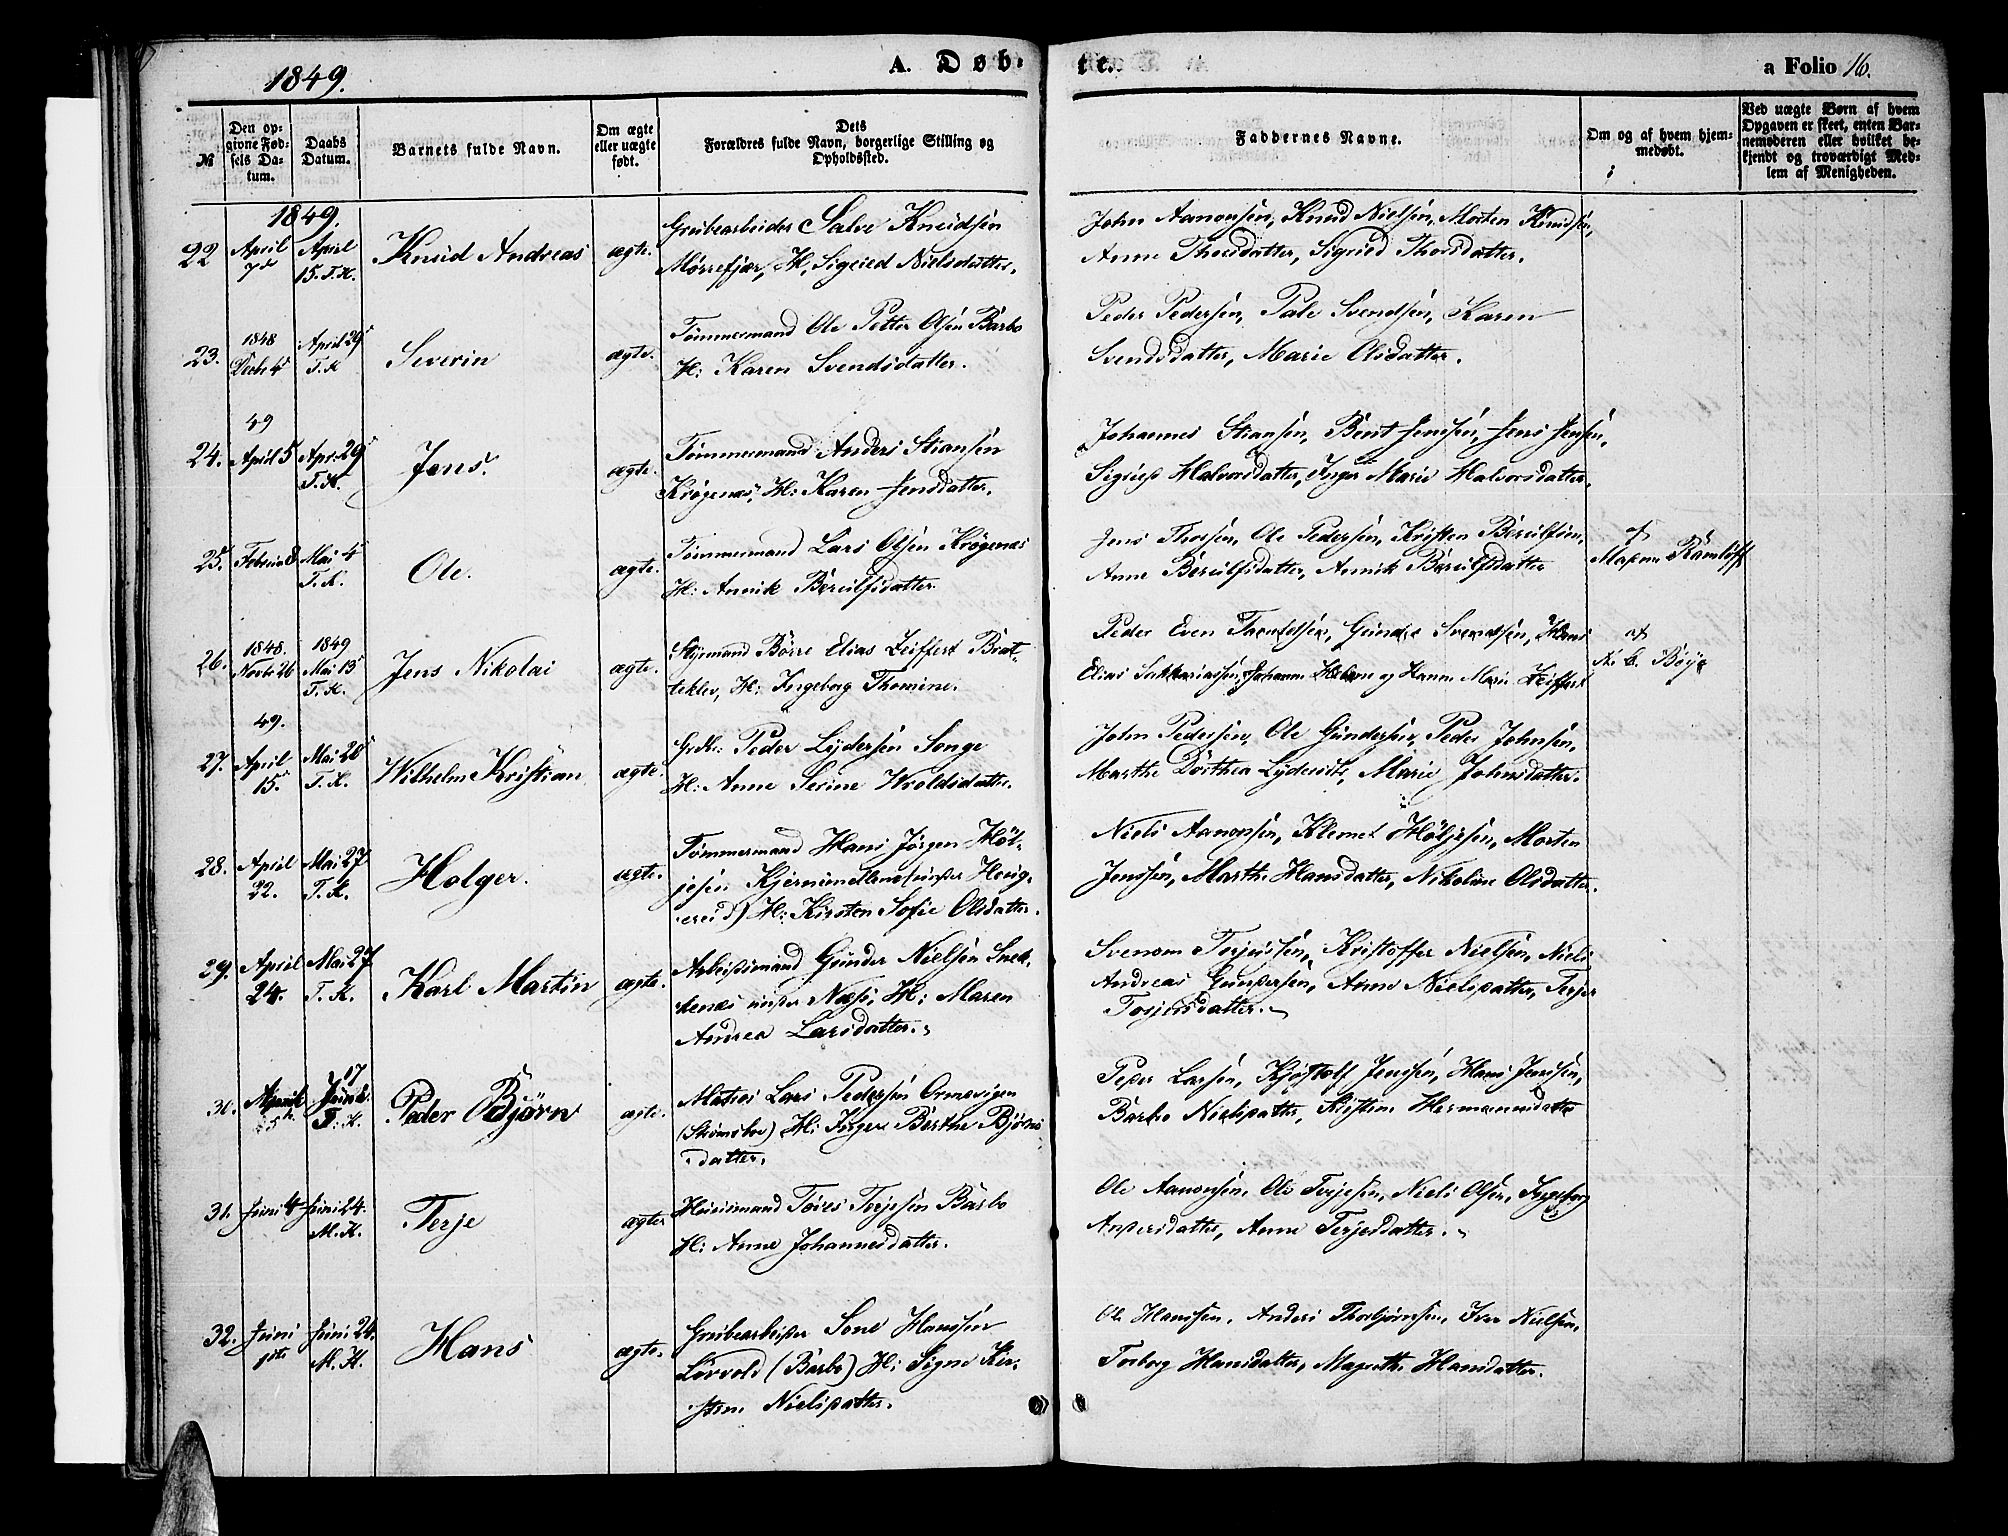 1849.
A. Døb-
te.
a Folio 16.
№
Den op-
givne Fød-
sels Da-
tum.
Daabs
Datum.
Barnets fulde Navn.
Om ægte
eller uægte
født.
Dets
Forældres fulde Navn, borgerlige Stilling og
Opholdssted.
Faddernes Navne.
Om og af hvem hjem-
medøbt.
Ved uægte Børn af hvem
Opgaven er skeet, enten Bar-
nemoderen eller hvilket be-
kjendt og troværdigt Med-
lem af Menigheden.
1849.
22
April
7de
April
15. T. K.
Knud Andreas
ægte.
Grubearbeider Salve Knudsen
Mørrefjær, H. Sigried Nielsdatter.
John Aanonsen, Knud Nielsen, Morten Knudsen,
Anne Thorsdatter, Sigried Thorsdatter.
23.
1848
Decbr 4
April 29
T. K
Severin
ægte.
Tømmermand Ole Petter Olsen Barbo
H: Karen Svendsdatter.
Peder Pedersen, Pale Svendsen, Karen
Svendsdatter, Marie Olsdatter.
24.
49
April 5
Apr. 29
T. K.
Jens.
ægte.
Tømmermand Anders Stiansen
Krøgenæs, H: Karen Jensdatter.
Johannes Stiansen, Bent Jenssen, Jens Jensen,
Sigried Halvorsdatter, Inger Marie Halvorsdatter.
25.
Februar 8
Mai 4
T. K.
Ole.
ægte.
Tømmermand Lars Olsen Krøgenæs
H: Annik Berulfsdatter.
Jens Thorsen, Ole Pedersen, Kristen Berulfsen,
Anne Berulfsdatter, Annik Berulfsdatter
af
26.
1848.
Novbr 26
1849
Mai 13
T. K.
Jens Nikolai
ægte.
Styrmand Børre Elias Zeiffert Brat-
teklev, H: Ingeborg Thomine.
Peder Even Gunder Svendsen, Hans
Elias Johanne Helene og Hanne Marie Zeiffert
af
27.
49.
April
15.
Mai 20
T. K.
Wilhelm Kristian
ægte.
Peder Lydersen Songe
H: Anne Serine Wroldsdatter.
John Pedersen, Ole Gundersen, Peder Johnsen,
Marthe Dorthea Lydersdtr, Marie Johnsdatter.
28.
April
22.
Mai 27
T. K.
Holger.
ægte.
Tømmermand Hans Jörgen Höl-
jesen Kjernimellene (under Heig-
ereid) H: Kirsten Sofie Olsdatter.
Niels Aanonsen, Klemet Höljesen, Morten
Jenssen, Marthe Hansdatter, Nikoline Olsdatter.
29.
April
24.
Mai 27
T. K.
Karl Martin
ægte.
Arbeidsmand Gunder Nielsen Snek-
kenæs under Næs, H: Maren
Andrea Larsdatter.
Svenom Terjussen, Kristoffer Nielsen, Niels
Andreas Gundersen, Anne Nielsdatter, Terjer
Tosjersdatter.
30.
April
17
Juni
T. K.
Peder Bjørn
ægte.
Matros Lars Pedersen Ormevigen
(Strømsboe) H: Inger Berthe Bjørns-
datter.
Peder Larsen, Kjøstolf Jenssen, Hans Jenssen,
Barbro Nielsdatter, Kristine Hermannsdatter
31.
Juni 4
Juni 24.
M. K.
Terje
ægte
Huusmand Tores Terjesen Barbo
H: Anne Johannesdatter.
Ole Aanonsen, Ole Terjesen, Niels Olsen, Ingeborg
Andersdatter, Anne Terjesdatter.
32.
Juni
1ste
Juni 24.
M. K.
Hans
ægte.
Grubearbeider Sone Hanssen
Lørvold (Barbo) H: Signe Kir-
stine Nielsdatter.
Ole Hanssen, Anders Thorbjørnsen, Iver Nielsen,
Torborg Hansdatter, Magrethe Hansdatter.